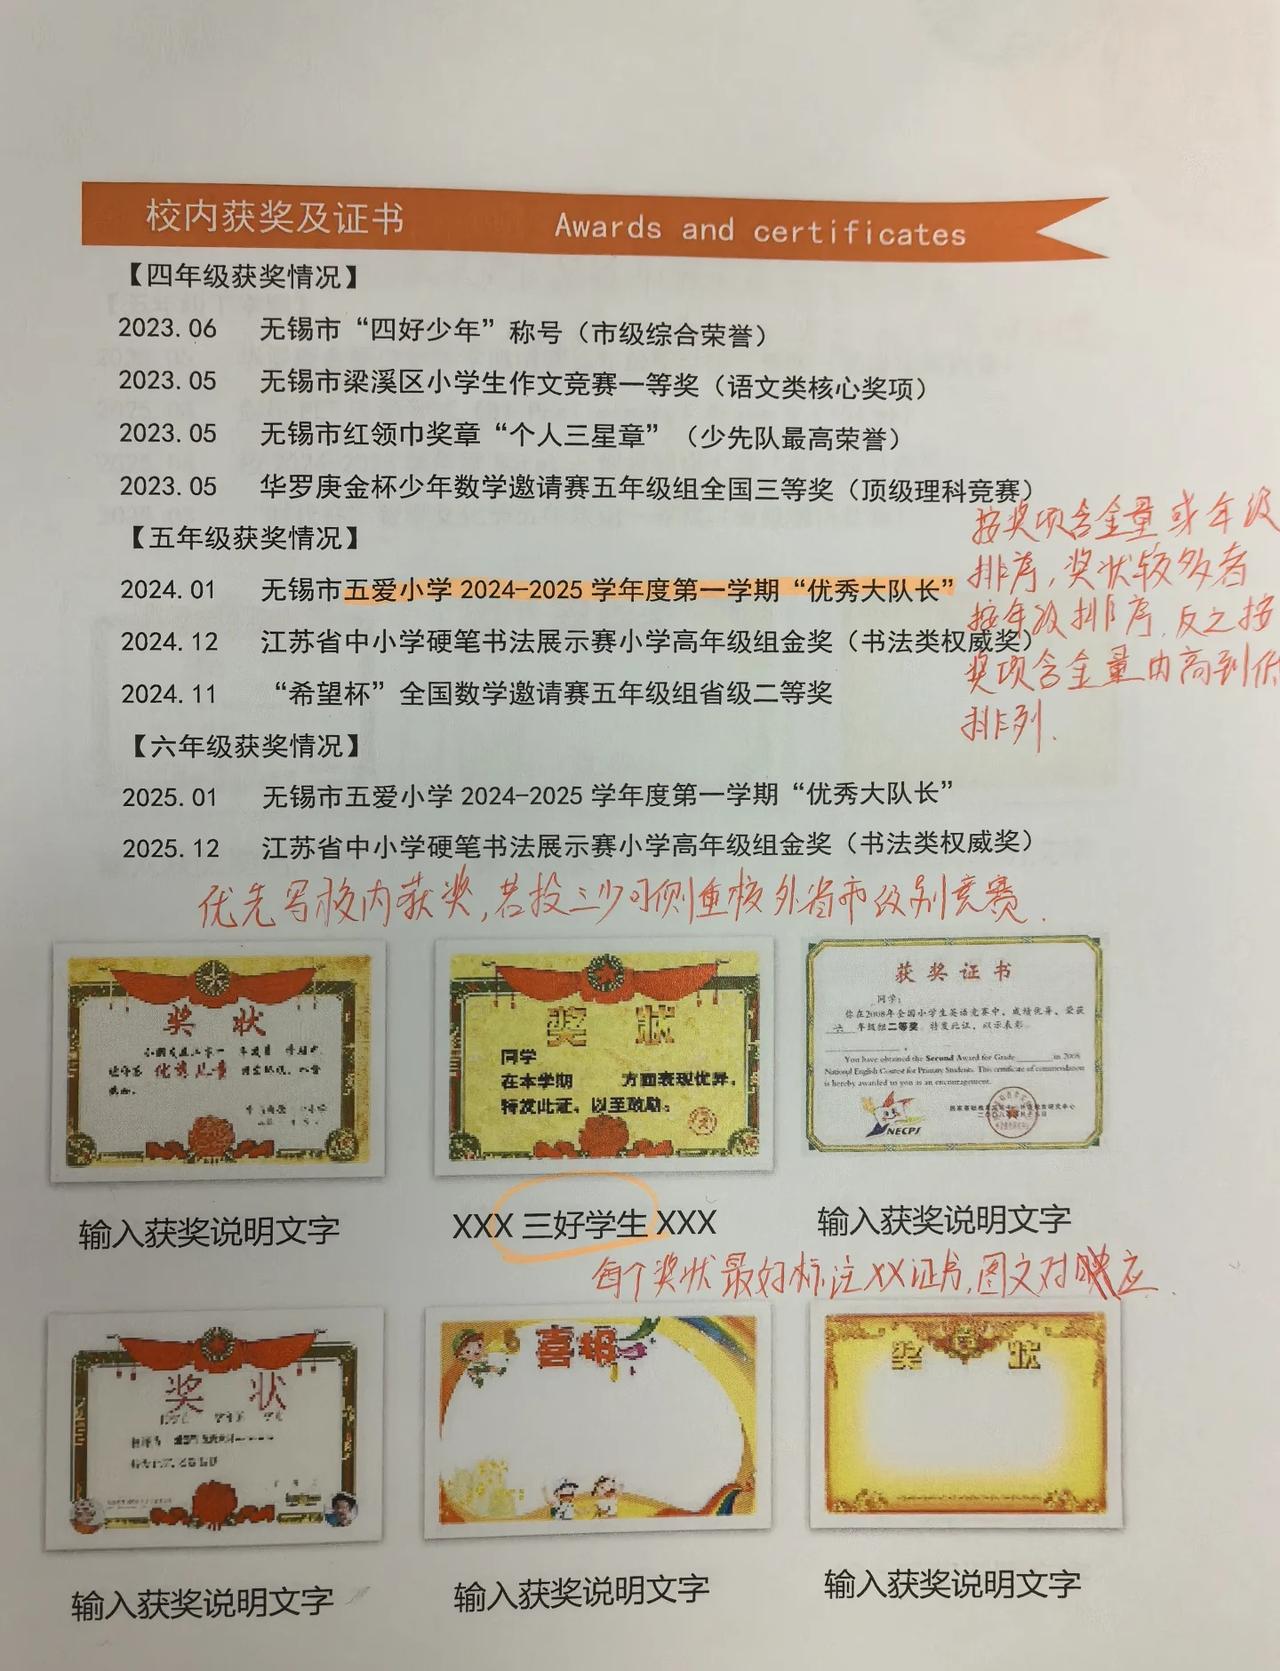 校内获奖及证书 Awards and certificates
【四年级获奖情况】
2023.06 无锡市“四好少年”称号（市级综合荣誉）
2023.05 无锡市梁溪区小学生作文竞赛一等奖（语文类核心奖项）
2023.05 无锡市红领巾奖章“个人三星章”（少先队最高荣誉）
2023.05 华罗庚金杯少年数学邀请赛五年级组全国三等奖（顶级理科竞赛）
【五年级获奖情况】
2024.01 无锡市五爱小学 2024-2025 学年度第一学期“优秀大队长”
2024.12 江苏省中小学硬笔书法展示赛小学高年级组金奖（书法类权威奖）
2024.11 “希望杯”全国数学邀请赛五年级组省级二等奖
按奖项含金量或年级
排序，奖状较多者
按年级排序，反之按
奖项含金量由高到低
排列.
【六年级获奖情况】
2025.01 无锡市五爱小学 2024-2025 学年度第一学期“优秀大队长”
2025.12 江苏省中小学硬笔书法展示赛小学高年级组金奖（书法类权威奖）
优先写校内获奖，若投三少可侧重校外省市级别竞赛.
奖 状
优秀儿童
奖 状
同学
在本学期 方面表现优异，
特发此证，以至鼓励。
获奖证书
同学：
你在2008年全国小学生英语竞赛中，成绩优异，荣获
六 年级组二等奖。特发此证，以示表彰。
You have obtained the Second Award for Grade in 2008
National English Contest for Primary Students. This certificate of commendation
is hereby awarded to you as an encouragement.
NECPS
输入获奖说明文字
XXX 三好学生 XXX
输入获奖说明文字
每个奖状最好标注XX证书，图文对应.
奖 状
喜报
奖 状
输入获奖说明文字
输入获奖说明文字
输入获奖说明文字